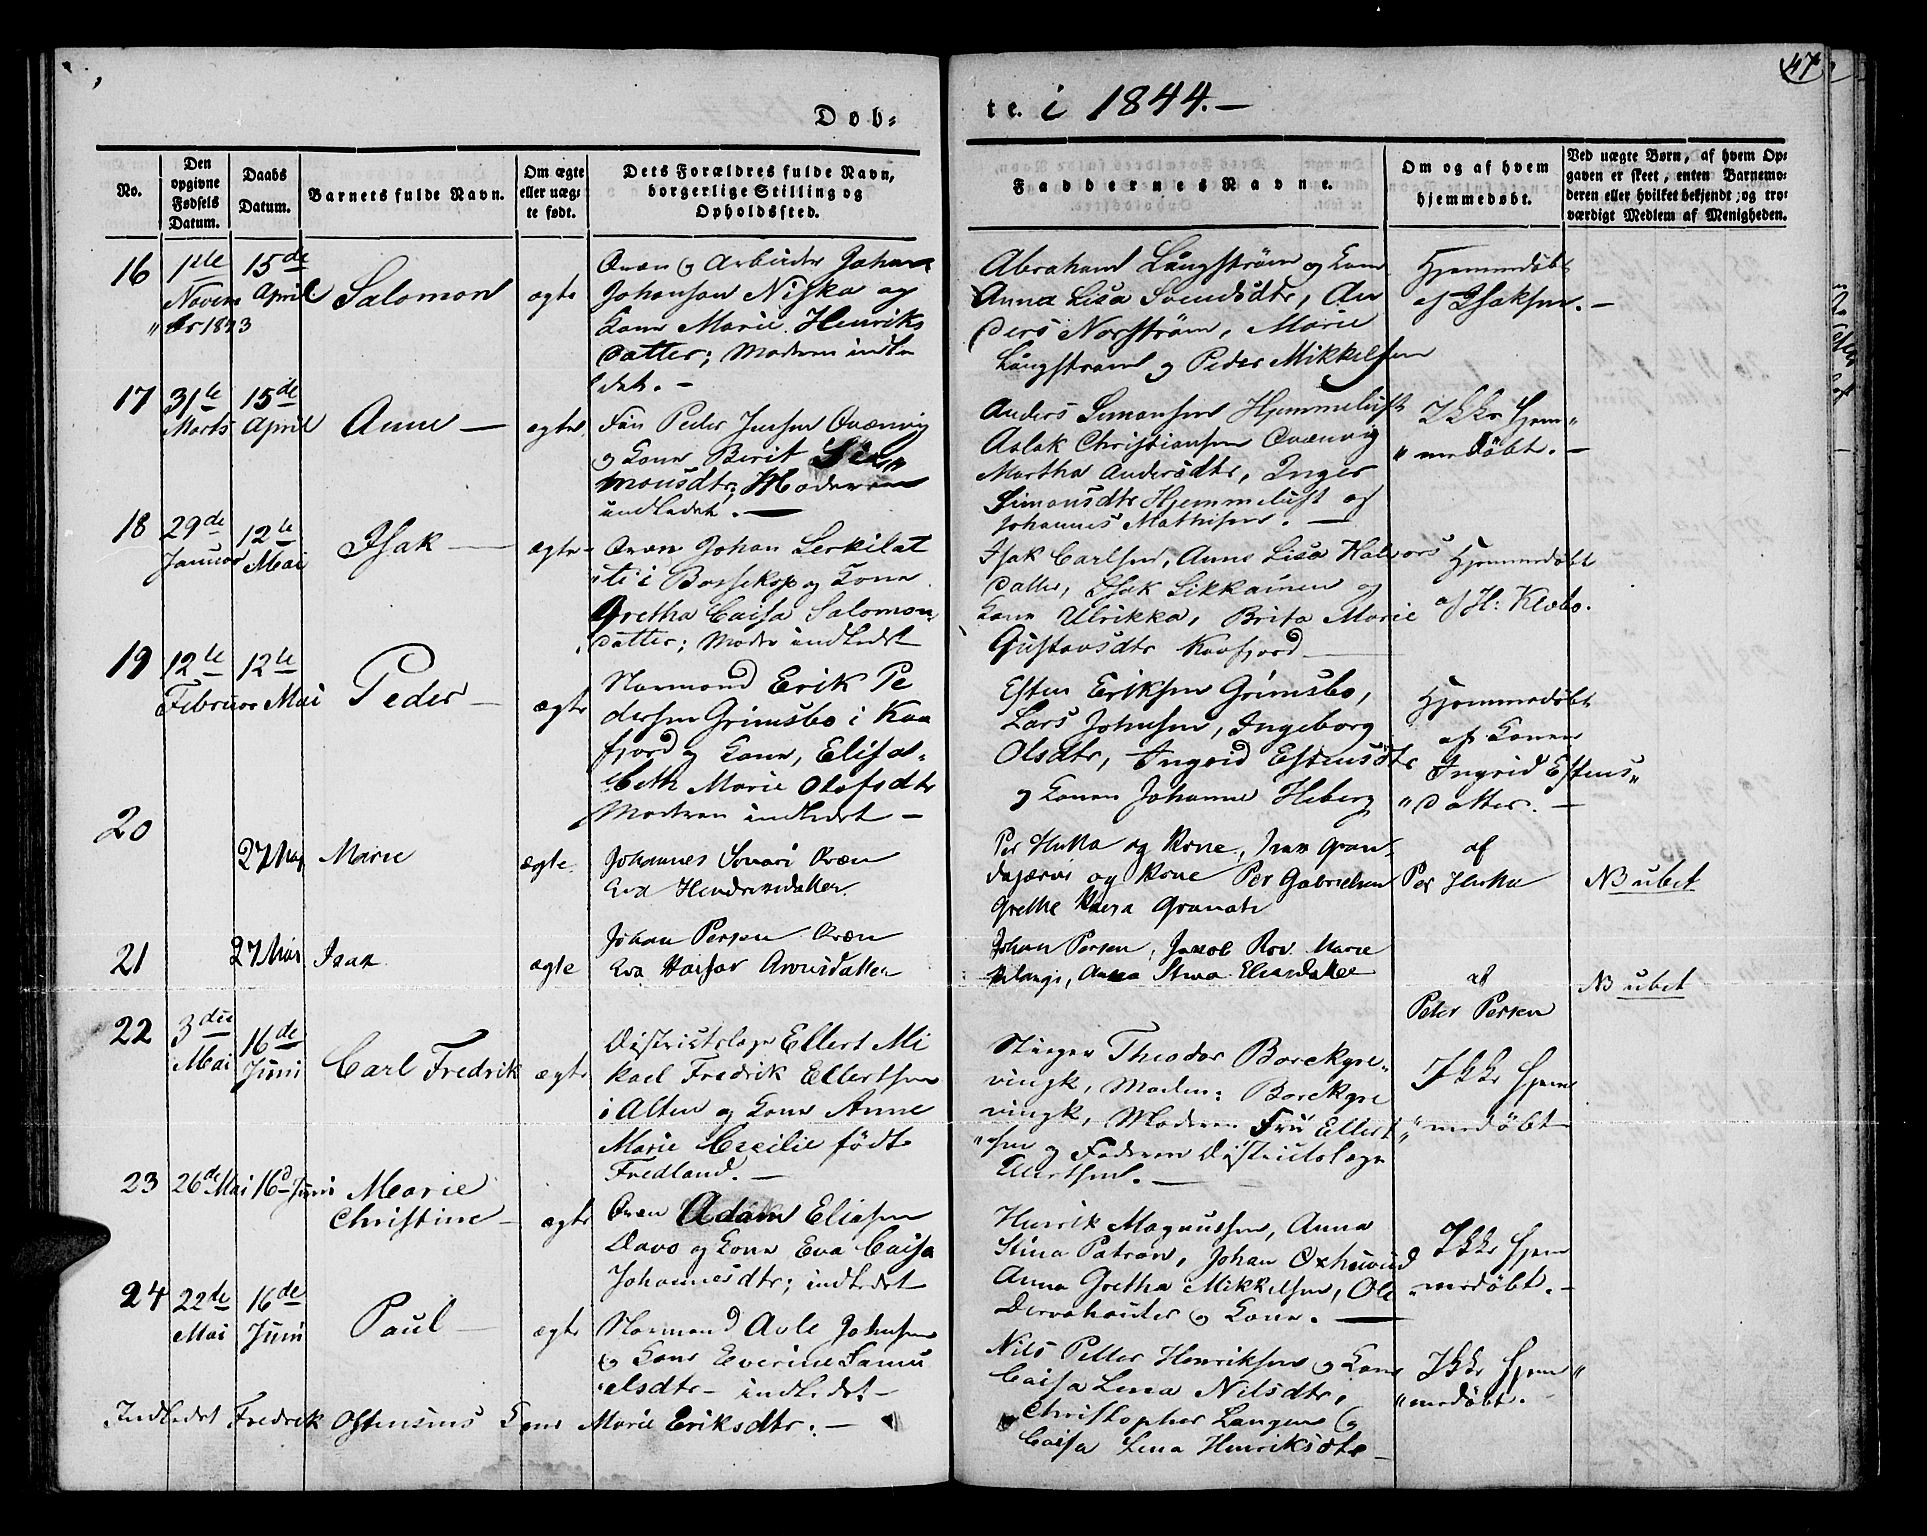 47
Døb-
te. i 1844.-
No.
Den opgivne Fødsels Datum.
Daabs Datum.
Barnets fulde Navn.
Om ægte eller uægte født.
Dets Forældres fulde Navn, borgerlige Stilling og Opholdssted.
Faddernes Navne.
Om og af hvem hjemmedøbt.
Ved uægte Børn, af hvem Opgaven er skeet, enten Barnemoderen eller hvilket bekjendt og troværdigt Medlem af Menigheden.
16
1ste
15de
April
Salomon
ægte
Qvæn og Arbeider Johan
Johansen Niska og
Kone Marie Henriks
datter; Moderen indle
det. -
Abraham Långström og Kone
Anna Lisa Svendsdtr, An
ders Norström, Marie
Långström og Peder Mikkelsen
Hjemmedøbt
af Isaksen. -
17
31te
Marts
15de
April
Anne -
ægte
Fin Peder Jensen Qvænvig
og Kone Berit Si"
monsdtr; Moderen
indledet. -
Anders Simonsen Hjemmeluft
Aslak Christiansen Qvænvig
Martha Andersdtr, Inger
Simonsdtr Hjemmeluft og
Johannes Mathisen. -
Ikke Hjem"
"medøbt. -
18
29de
Januar
12te
Mai
Isak -
ægte -
Qvæn Johan Lerkilat
"te i Bossekop og Kone
Gretha Caisa Salomon
datter; Moder indledet
Isak Carlsen, Anne Lisa Halvors
datter, Isak Likkainen og
Kone Ulrikka, Brita Marie
Gustavsdtr Kaafjord -
Hjemmedøbt
af H: Klæbo.
19
12te
Februar
12te
Mai
Peder -
ægte
Normand Erik Pe
dersen Grimsbo i Kaa
fjord og Kone, Elisa-
beth Marie Olofsdtr
Moderen indledet -
Esten Eriksen Grimsbo,
Lars Johnsen, Ingeborg
Olsdtr, Ingrid Estensdtr
og Konen Johanne Heberg
Hjemmedøbt
af Konen
Ingrid Estens"
"datter. -
20
27 Mai
Marie
ægte.
Johannes Qvæn
Eva
Per Hukka og Kone,
og Kone Per Gabrielsen
Grethe Kaisa
af
Per Hukka
NB ubet
21
27 Mai
Isak
ægte
Johan Persen Qvæn
Eva
Johan Persen, Jakob Marie
Anna Stina
af
Peter Persen
NB ubet
22
3die
Mai
16de
Juni
Carl Fredrik
ægte
Districtslæge Ellert Mi
kael Fredrik Ellertsen
i Alten og Kone Anne
Marie Cecilie født
Fredland. -
Stiger Theodor Borckgre-
vingk, Madm: Borckgre
vingk, Moderen Fru Ellert
"sen og Faderen Districtslæge
Ellertsen. -
Ikke Hjem
"medøbt
23
26de Mai
16de Juni
Marie
Christine -
ægte
Qvæn Adam Eliasen
Davo og Kone Eva Caisa
Johannesdtr; indledet
Henrik Magnussen, Anna
Stina Patron, Johan
Anna Gretha Mikkelsen, Ole
og Kone. -
Ikke Hjem
"medøbt. -
24
22de
Mai
16de
Juni
Paul -
ægte
Normand Avle Johnsen
og Kone Everine Samu
elsdtr - indledet -
Nils Petter Henriksen og Kone
Caisa Lena Nilsdtr,
Christopher Langen og
Caisa Lena Henriksdtr -
Ikke Hjem"
"medøbt.
Indledet Fredrik Ostensens Kone Marie Eriksdtr. -